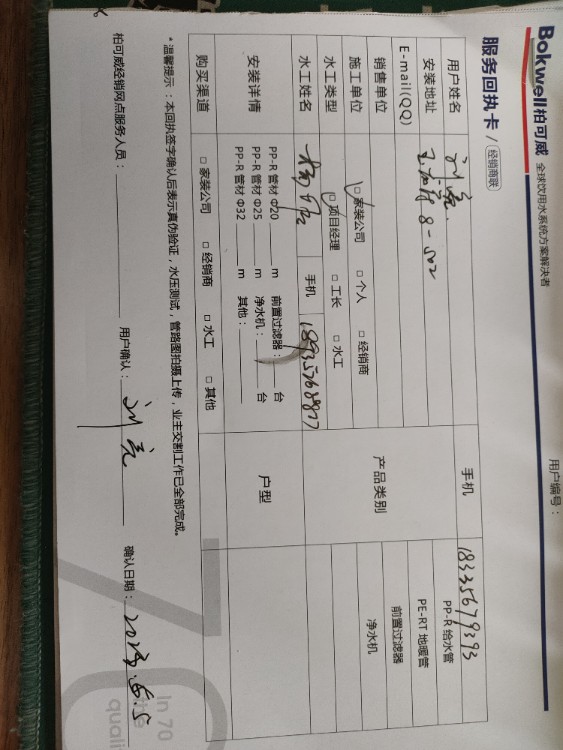 Bokwell柏可威 全球饮用水系统方案解决者
用户编号：
服务回执卡 / 经销商联
用户姓名 刘亮 手机 18335679393
安装地址 8-502
E-mail(QQ)
销售单位
施工单位 □家装公司 □个人 □经销商
水工类型 □项目经理 □工长 □水工
水工姓名 手机
产品类别 PP-R 给水管
PE-RT 地暖管
前置过滤器
净水机
安装详情 PP-R 管材 Φ20 m 前置过滤器： 台
PP-R 管材 Φ25 m 净水机： 台
PP-R 管材 Φ32 m 其他：
户型
购买渠道 □家装公司 □经销商 □水工 □其他
*温馨提示：本回执签字确认后表示真伪验证，水压测试，管路图拍摄上传，业主交割工作已全部完成。
柏可威经销网点服务人员： 用户确认：刘亮 确认日期：2023.6.5
In 70
quali